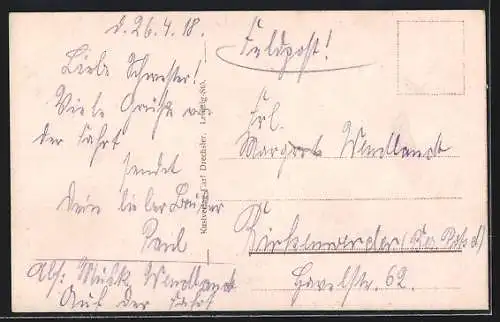 d. 26.4.18.
Liebe Schwester!
Viele Grüße von
der Fahrt
sendet
Dein lieber Bruder
Paul
Abs: Musk. Wendlandt
Auf der Fahrt
Kunstverlag Carl Drechsler, Leipzig-Stö.
Feldpost!
Frl.
Margarete Wendlandt
Birkenwerder (Bez. Potsd)
Havelstr. 62.